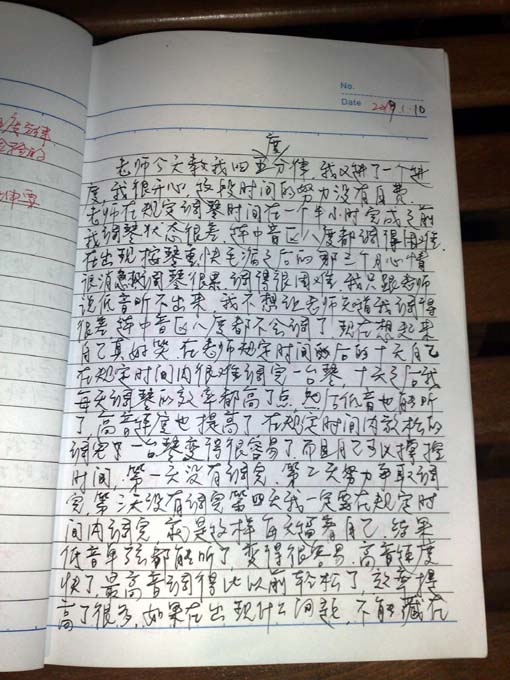 度宫律
No.
Date 2009.1.10
度
老师今天教我四五分律,我又进了一个进
度,我很开心,这段时间的努力没有白费.
老师在规定调琴时间在一个半小时完成之前
我调琴状态很差,连中音区八度都调得困难.
在出现按琴更快毛病之后的那三个月心情
很消急躁调琴很累调得很困难.我只跟老师
说低音听不出来,我不想让老师知道我调得
很差连中音区八度都不会调了,现在想起来
自己真好笑.在老师规定时间后的十天自己
在规定时间内很难调完一台琴,十天之后我
每天调琴的效率都高了点,她后低音也能听
了,高音速度也提高了.在规定时间内轻松的
调完了一台琴变得很容易了而且自己可以掌控
时间,第一天没有调完,第二天努力争取调
完,第三次没有调完第四天我一定要在规定时
间内调完,就是这样每天逼着自己,结果
低音单弦都能听了,变得很容易,高音速度
快了,最高音调得比以前轻松了,效率提
高了很多,如果在出现什么问题,不能藏在